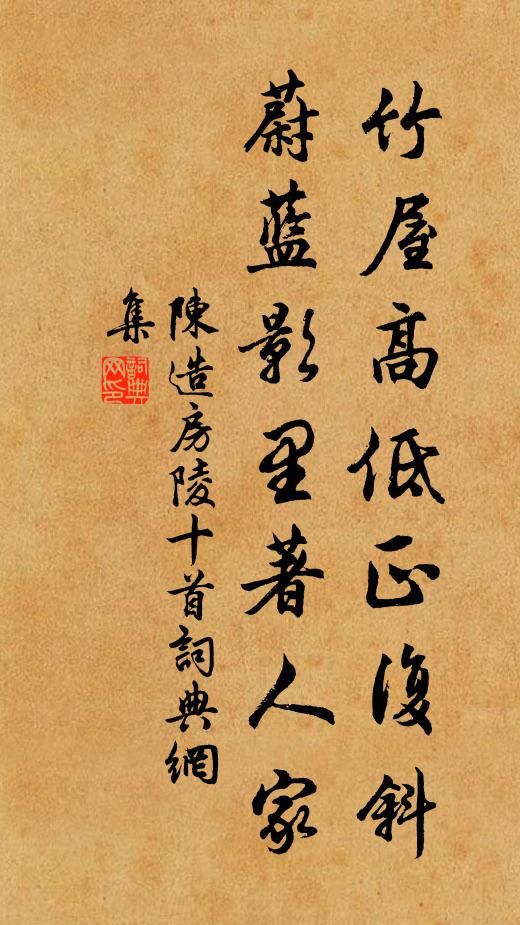 竹屋高低正復斜
蔚藍影里著人家
陳造房陵十首詞典網
集
詞典網印